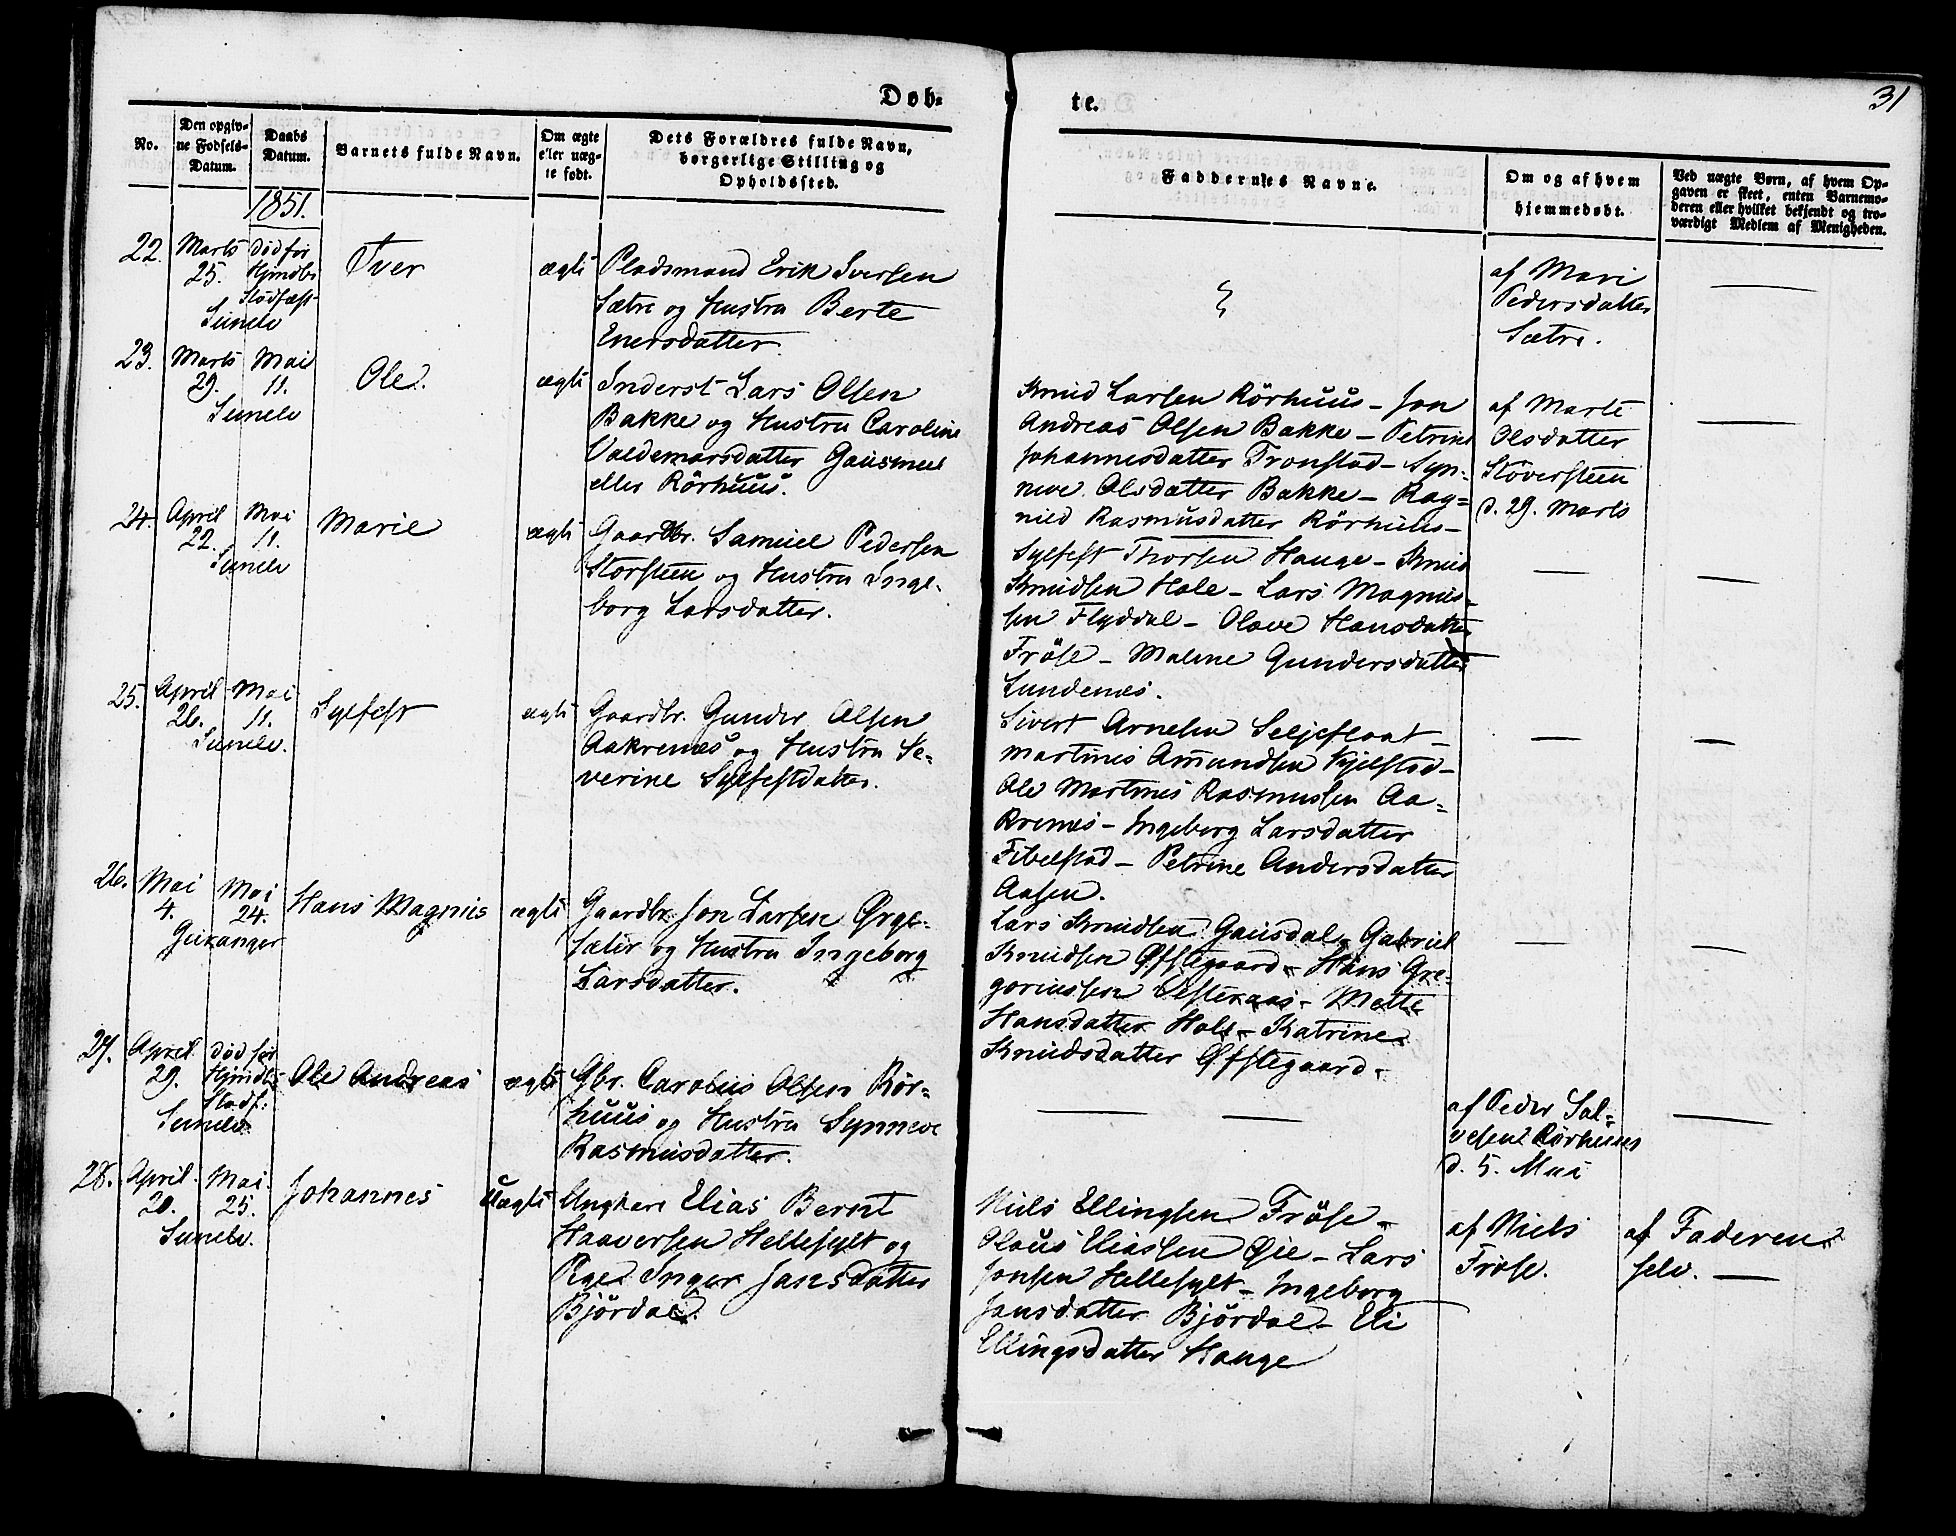 Døb-
te.
31
No.
Den opgiv-
ne Fødsels-
Datum.
Daabs
Datum.
Barnets fulde Navn.
Om ægte
eller uæg-
te født.
Dets Forældres fulde Navn,
borgerlige Stilling og
Opholdssted.
Faddernes Navne.
Om og af hvem
hjemmedøbt.
Ved uægte Børn, af hvem Op-
gaven er skeet, enten Barnemo-
deren eller hvilket bekjendt og tro-
værdigt Medlem af Menigheden.
1851.
22.
Marts
25.
Død før
Hjmdbs
Stadfæst-
Sunelv
Iver
ægte
Pladsmand Erik Iversen
Sætre og Hustru Berte
Enersdatter.
af Mari
Pedersdatter
Sætre.
23.
Marts
29.
Mai
11.
Sunelv
Ole.
ægte
Inderst Lars Olsen
Bakke og Hustru Caroline
Valdemarsdatter Gausmeel
eller Rörhuus.
Knud Larsen Rörhuus - Jon
Andreas Olsen Bakke - Petrine
Johannesdatter Tronstad - Syn-
neve Olsdatter Bakke - Rag-
nild Rasmusdatter Rörhuus -
af Marte
Olsdatter
Stöversteen
d. 29. Marts
24.
April
22.
Mai
11.
Sunelv
Marie
ægte
Gaardbr. Samuel Pedersen
Storsteen og Hustru Inge-
borg Larsdatter.
Sylfest Thorsen Hauge - Knud
Knudsen Hole - Lars Magnus-
sen Flyddal - Olave Hansdatter
Fröse - Malene Gundersdatter
Lundenes.
25.
April
26.
Mai
11.
Sunelv.
Sylfest
ægte
Gaardbr. Gunder Olsen
Aakrenes og Hustru Se-
verine Sylfestdatter.
Sivert Arnesen Seljefloat -
Martines Amundsen Kjelstad -
Ole Martines Rasmussen Aa-
krenes - Ingeborg Larsdatter
Fibelstad - Petrine Andersdatter
Aasen.
26.
Mai
4.
Mai
24.
Geiranger
Hans Magnus
ægte
Gaardbr. Jon Larsen Örge-
sæter og Hustru Ingeborg
Larsdatter.
Lars Knudsen Gausdal - Gabriel
Knudsen Øfstegaard - Hans Gre-
goriussen Vesteraas - Mette
Hansdatter Hole - Katrine
Knudsdatter Øfstegaard -
27.
April
29.
Død før
Hjmdbs
Stadf:
Sunelv
Ole Andreas
ægte
Gbr. Carolus Olsen Rör-
huus og Hustru Synneve
Rasmusdatter.
af Peder Sal-
vesen Rörhuus
d. 5. Mai
28.
April
20.
Mai
25.
Sunelv.
Johannes
Uægte
Ungkarl Elias Bernt
Haaversen Hellesylt og
Pige Inger Jansdatter
Björdal.
Niels Ellingsen Fröse -
Olaus Eliassen Øie - Lars
Jonsen Hellesylt - Ingeborg
Jansdatter Björdal - Eli
Ellingsdatter Hauge
af Niels
Fröse.
af Faderen
selv.